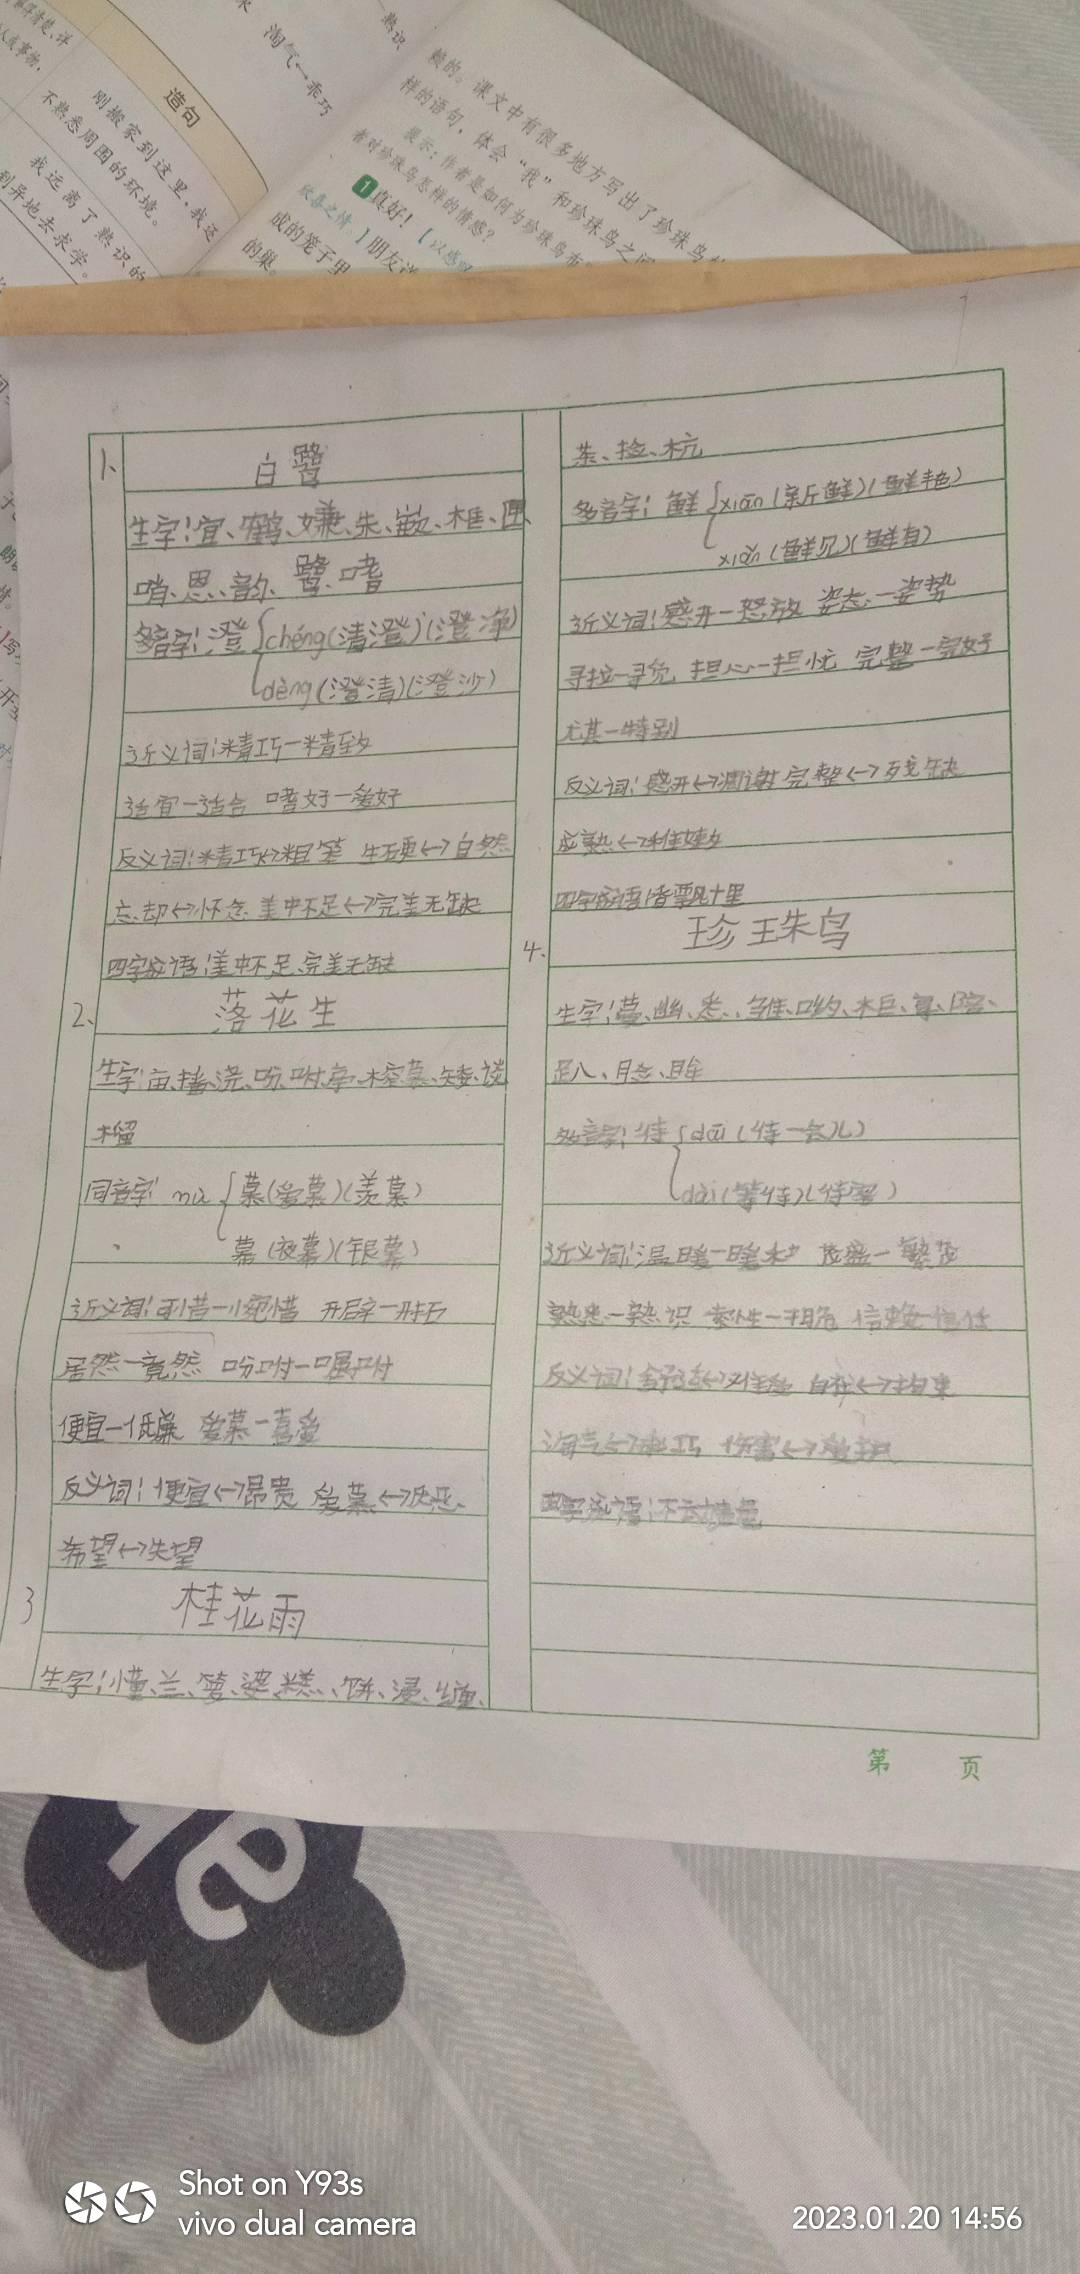 造句
刚搬家到这里,我还
不熟悉周围的环境。
我远离了熟识的
到异地去求学。
淘气↔乖巧
熟识
课文中有很多地方写出了珍珠鸟
样的语句,体会“我”和珍珠鸟之间
提示:作者是如何为珍珠鸟布
者对珍珠鸟怎样的情感?
1 真好!【以感叹
欣喜之情。】朋友送
成的笼子里
的巢。
1、
白鹭
生字:宜、鹤、嫌、朱、嵌、框、匣、
哨、恩、韵、鹭、嗜
多音字:澄{chéng(清澄)(澄净)
dèng(澄清)(澄沙)
近义词:精巧—精致
适宜—适合 嗜好—爱好
反义词:精巧↔粗笨 生硬↔自然
忘却↔怀念 美中不足↔完美无缺
四字成语:美中不足、完美无缺
2、
落花生
生字:亩、播、浇、吩、咐、亭、榨、慕、矮、谈
榴
同音字 mù{慕(爱慕)(羡慕)
幕(夜幕)(银幕)
近义词:可惜—惋惜 开辟—开拓
居然—竟然 吩咐—嘱咐
便宜—低廉 爱慕—喜爱
反义词:便宜↔昂贵 爱慕↔厌恶、
希望↔失望
3
桂花雨
生字:懂、兰、箩、婆、糕、饼、浸、缠、
茶、捡、杭
多音字:鲜{xiān(新鲜)(鲜艳)
xiǎn(鲜见)(鲜有)
近义词:盛开—怒放 姿态—姿势
寻找—寻觅 担心—担忧 完整—完好
尤其—特别
反义词:盛开↔凋谢 完整↔残缺
成熟↔稚嫩
四字成语:香飘十里
4、
珍珠鸟
生字:蔓、幽、悉、雏、哟、柜、
趴、眸
多音字:待{dāi(待一会儿)
dài(等待)(待客)
近义词:温暖—暖和 茂盛—繁茂
熟悉—熟识 索性—干脆 信赖—信任
反义词:舒适↔难受 自在↔拘束
淘气↔乖巧 伤害↔
四字成语:不动声色
第 页
Shot on Y93s
vivo dual camera
2023.01.20 14:56